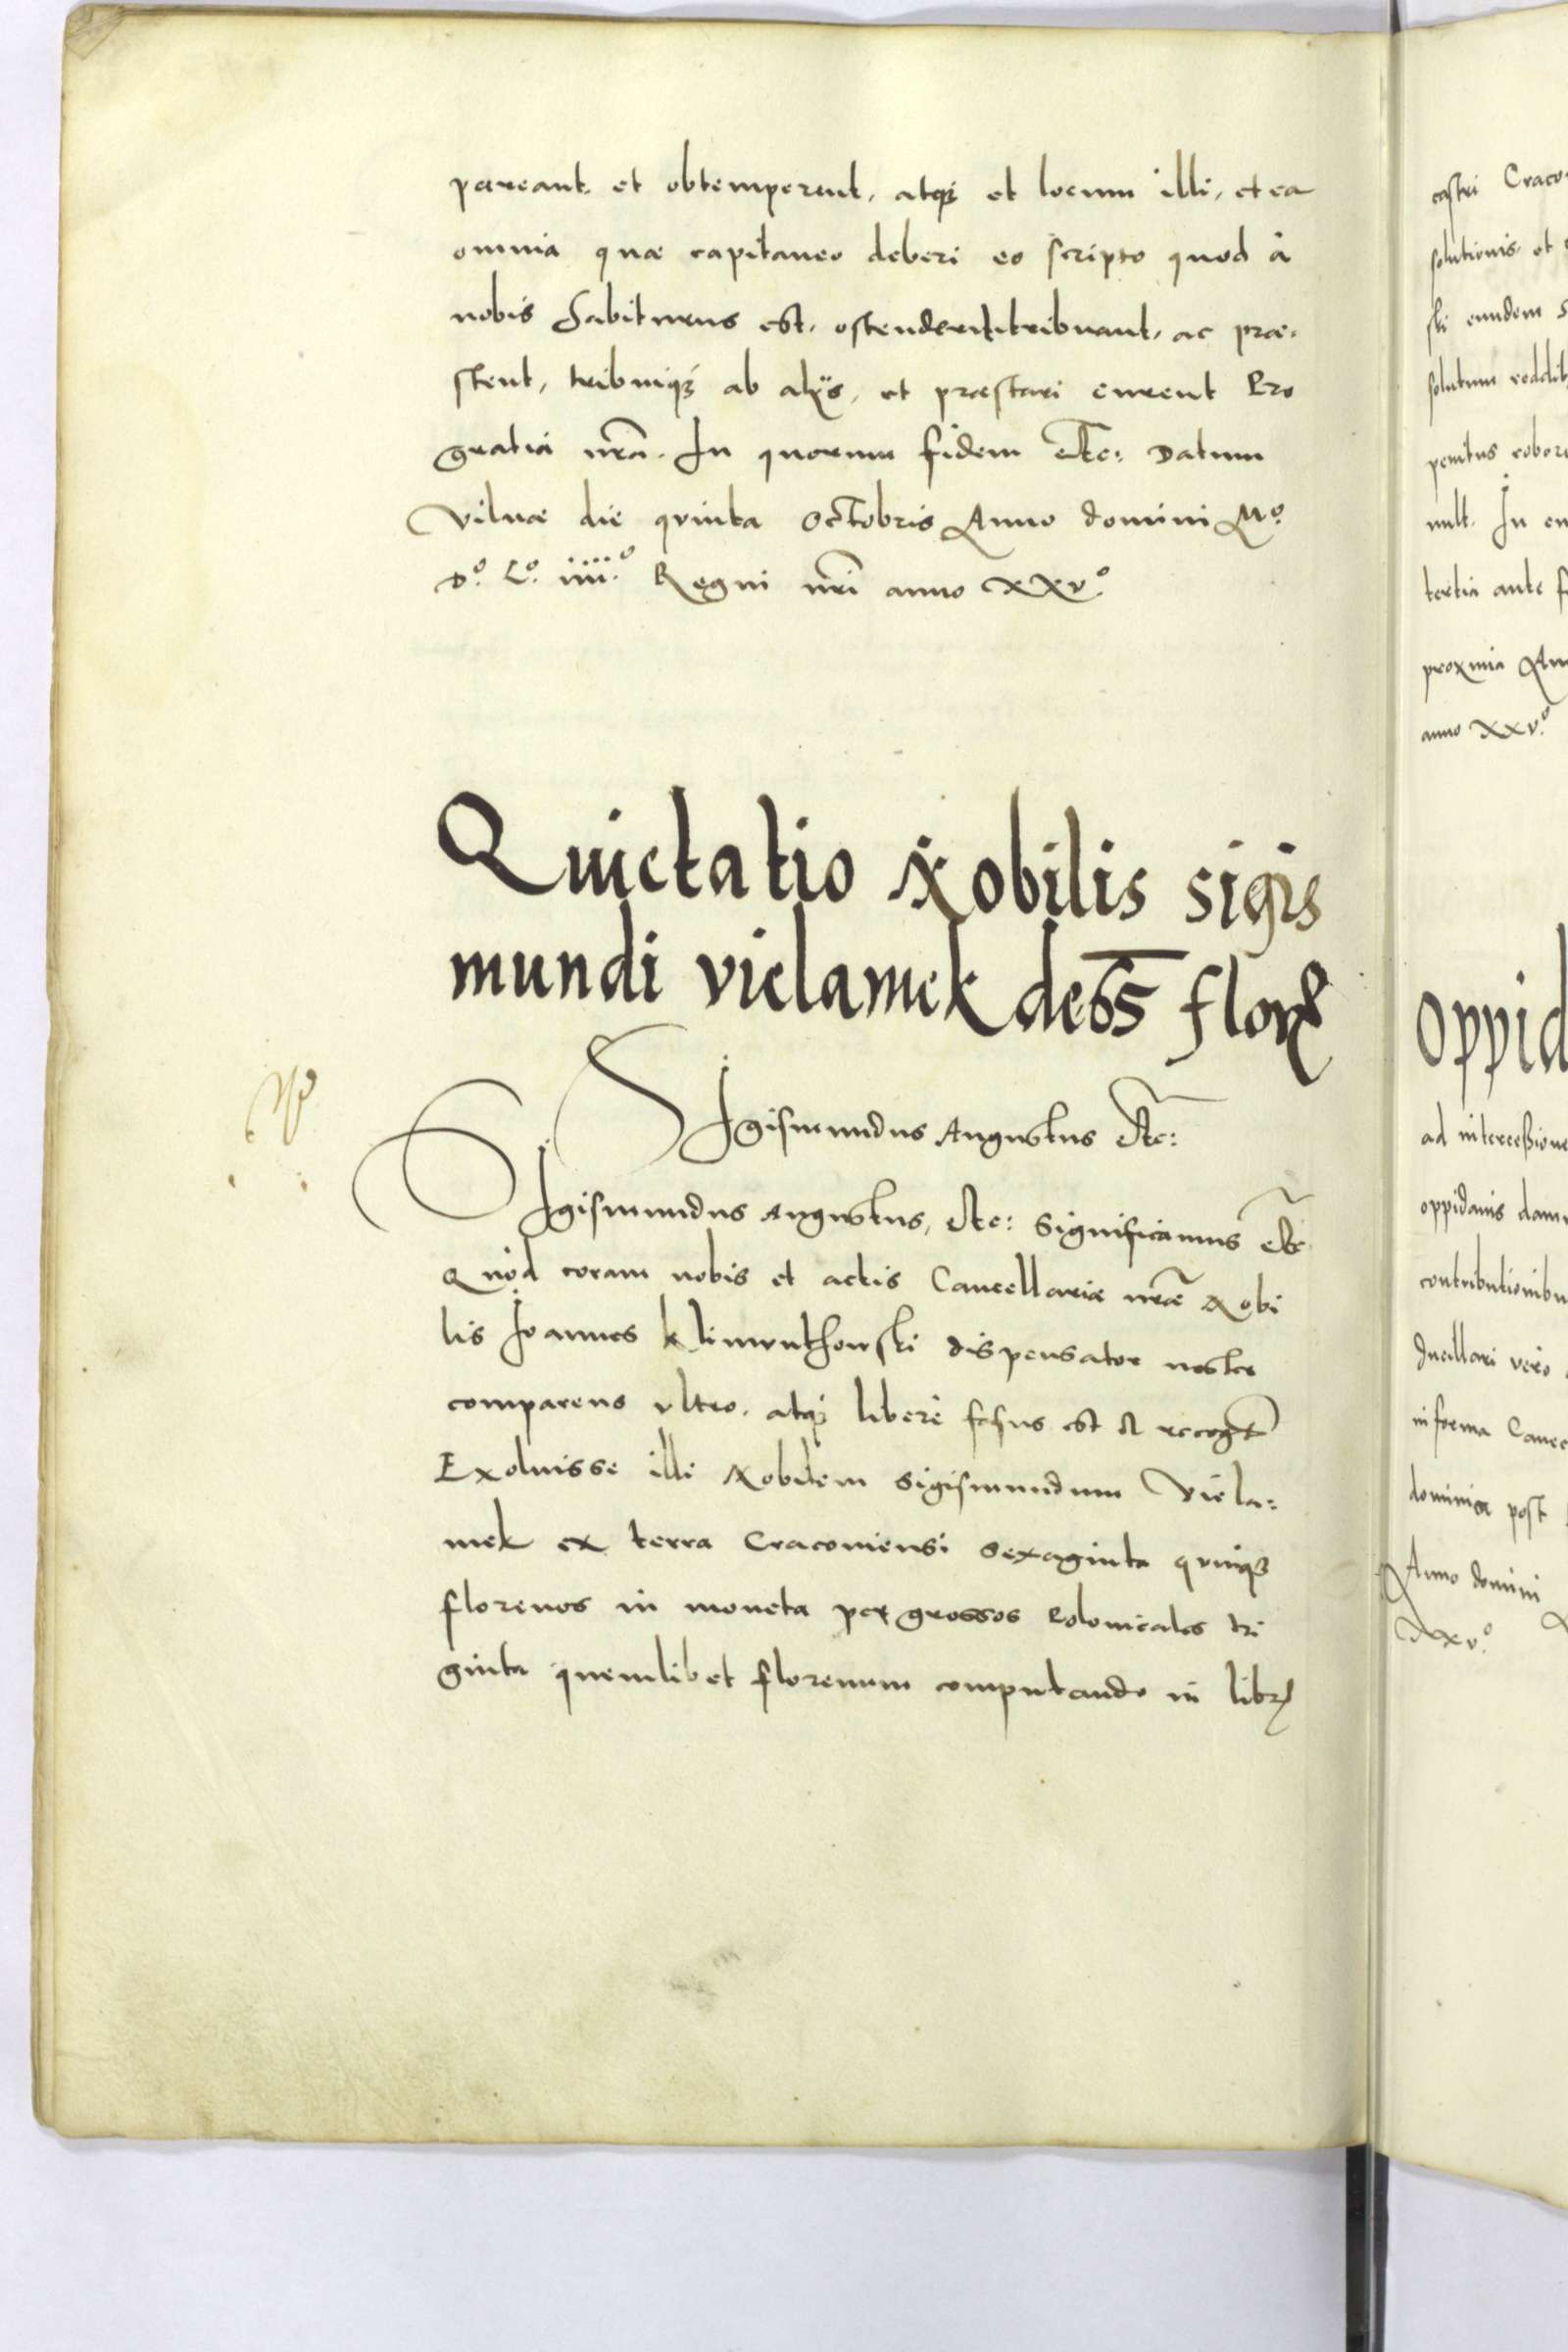 pareant et obtemperent, atq₃ et locum illi, et ea
omnia quae capitaneo deberi eo scripto quod à
nobis habiturus est, ostenderit tribuant, ac prae-
stent, tribuiq₃ ab alijs, et praestari curent Pro
gratia nr̃a. In quorum fidem etc: Datum
Vilnae die quinta Octobris Anno domini Mº
Dº. Lº. iiiiº. Regni nr̃i anno XXvº.
Quietatio Nobilis Sigis
mundi vielamek de 65 flor
Sigismundus Augustus etc:
Sigismundus Augustus, etc: Significamus etc
Quòd coram nobis et actis Cancellariae nr̃ae Nobi
lis Joannes Klimunthowski dispensator noster
comparens ultro, atq₃ liberè fassus est et recogt
Exoluisse illi Nobilem Sigismundum Viela-
mek ex terra Cracouiensi sexaginta quinq₃
florenos in moneta per grossos Polonicales tri
ginta quemlibet florenum computando in libr
castri Craco
solutionis, et
ski eundem S
solutum reddit
penitus robor
mllt. In
tertia ante f
proxima An
anno XXvº.
Oppid
ad intercessione
oppidanis dam
contributionibu
Ducillari vero
in forma Cance
dominica post
Anno domini
XXvº.